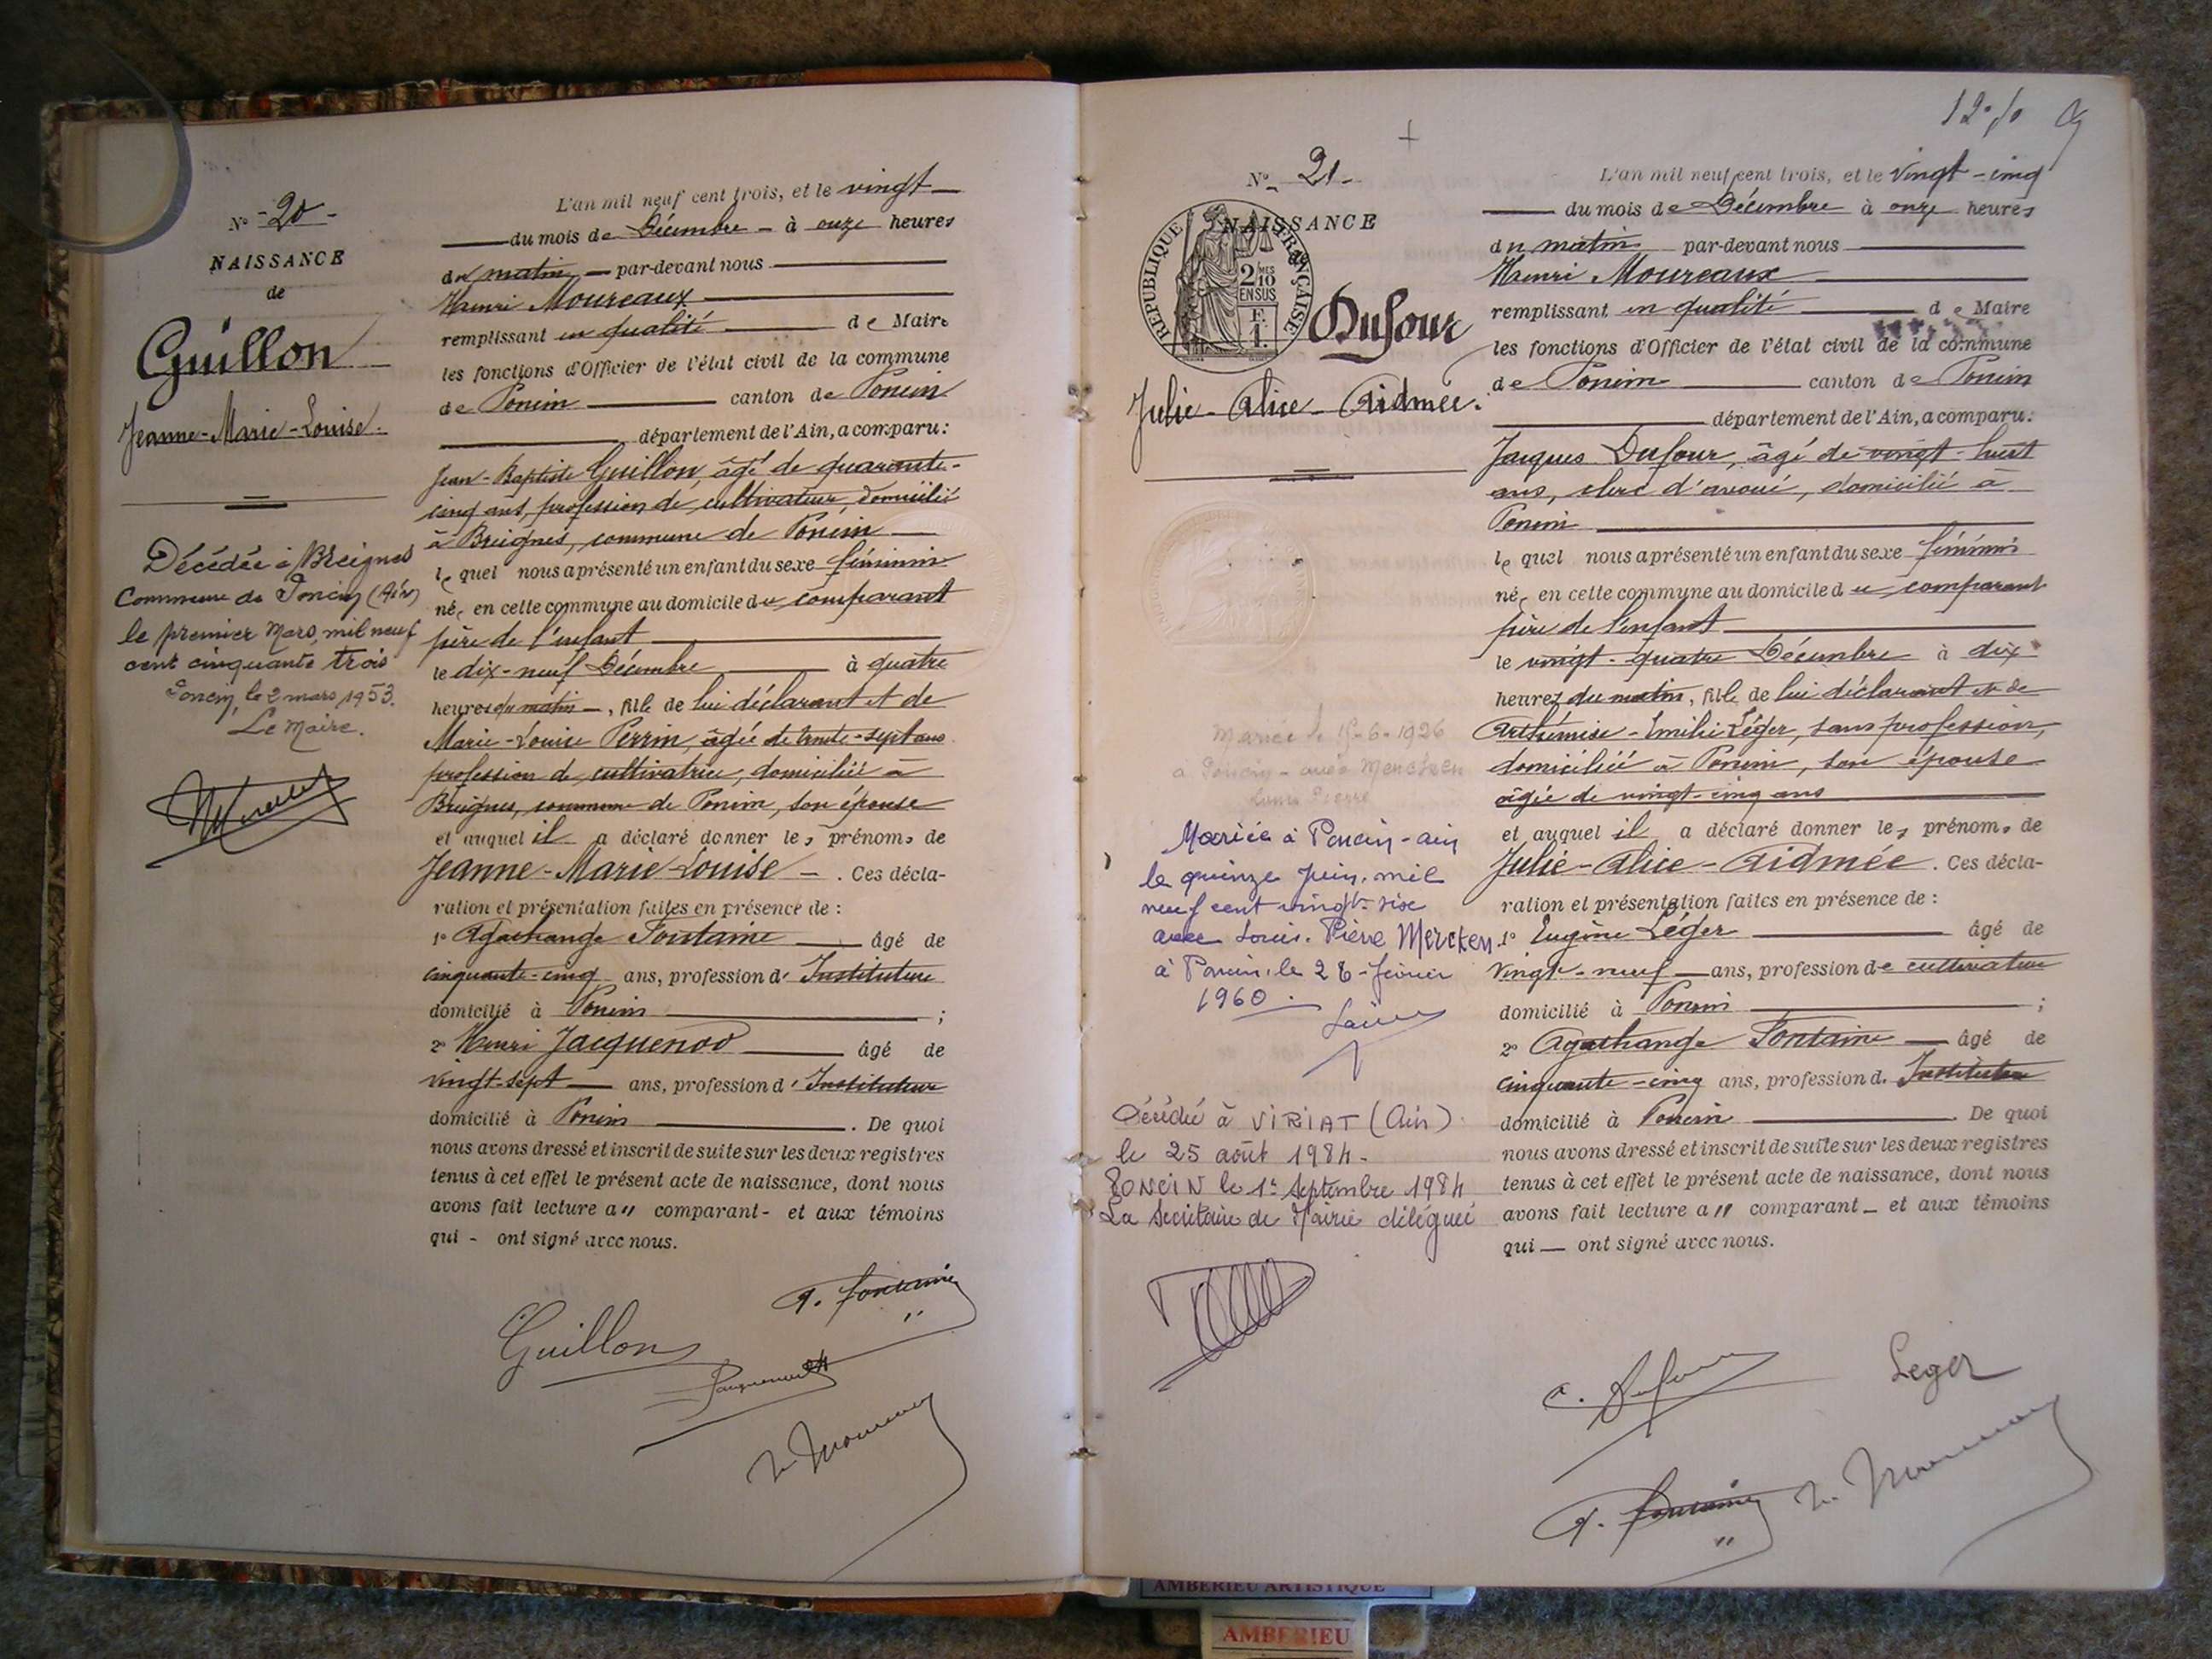 N° - 20 -
NAISSANCE
de
Guillon
Jeanne-Marie-Louise.
Décédée à Breignes
Commune de Poncin (Ain)
le premier Mars, mil neuf
cent cinquante trois
Poncin, le 2 mars 1953.
Le Maire.
L'an mil neuf cent trois, et le vingt
du mois de Décembre - à onze heures
du matin, par-devant nous
Henri Moureaux
remplissant en qualité de Maire
les fonctions d'Officier de l'état civil de la commune
de Poncin canton de Poncin
département de l'Ain, a comparu:
Jean-Baptiste Guillon, âgé de quarante-
cinq ans, profession de cultivateur, domicilié
à Breignes, commune de Poncin
lequel nous a présenté un enfant du sexe féminin
née en cette commune au domicile du comparant
père de l'enfant
le dix-neuf Décembre à quatre
heures du matin, fille de lui déclarant et de
Marie-Louise Perrin, âgée de trente-sept ans
profession de cultivatrice, domiciliée à
Breignes, commune de Poncin, son épouse
et auquel il a déclaré donner les prénoms de
Jeanne-Marie-Louise - . Ces décla-
ration et présentation faites en présence de :
1° Agathange Fontaine âgé de
cinquante-cinq ans, profession d'Instituteur
domicilié à Poncin ;
2° Henri Jacquenod âgé de
vingt-sept ans, profession d'Instituteur
domicilié à Poncin . De quoi
nous avons dressé et inscrit de suite sur les deux registres
tenus à cet effet le présent acte de naissance, dont nous
avons fait lecture au comparant - et aux témoins
qui - ont signé avec nous.
A. Fontaine
Guillon
Jacquenod
H. Moureaux
12/10
N° 21-
NAISSANCE
RÉPUBLIQUE FRANÇAISE
2/10 MES
EN SUS
F.
1.
Dufour
Julie-Alice-Aidmée.
Mariée le 15-6-1926
à Poncin - avec Mercken
Louis Pierre
Mariée à Poncin - ain
le quinze Juin, mil
neuf cent vingt-six
avec Louis-Pierre Mercken
à Poncin, le 28 février
1960.
Décédée à VIRIAT (Ain)
le 25 août 1984.
PONCIN le 1er septembre 1984
La Secrétaire de Mairie déléguée
L'an mil neuf cent trois, et le vingt-cinq
du mois de Décembre à onze heures
du matin par-devant nous
Henri Moureaux
remplissant en qualité de Maire
les fonctions d'Officier de l'état civil de la commune
de Poncin canton de Poncin
département de l'Ain, a comparu:
Jacques Dufour, âgé de vingt-huit
ans, clerc d'avoué, domicilié à
Poncin
lequel nous a présenté un enfant du sexe féminin
née en cette commune au domicile du comparant
père de l'enfant
le vingt-quatre Décembre à dix
heures du matin, fille de lui déclarant et de
Arthémise-Emilie Léger, sans profession,
domiciliée à Poncin, son épouse
âgée de vingt-cinq ans
et auquel il a déclaré donner les prénoms de
Julie-Alice-Aidmée. Ces décla-
ration et présentation faites en présence de :
1° Eugène Léger âgé de
vingt-neuf ans, profession de cultivateur
domicilié à Poncin ;
2° Agathange Fontaine âgé de
cinquante-cinq ans, profession d'Instituteur
domicilié à Poncin . De quoi
nous avons dressé et inscrit de suite sur les deux registres
tenus à cet effet le présent acte de naissance, dont nous
avons fait lecture au comparant - et aux témoins
qui - ont signé avec nous.
Leger
A. Fontaine H. Moureaux
AMBERIEU ARTISTIQUE
AMBERIEU